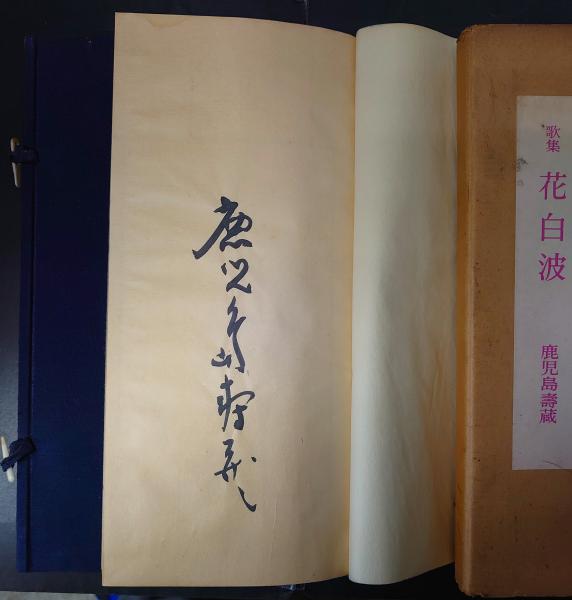 歌集
花白波
鹿児島壽蔵
鹿児島壽蔵